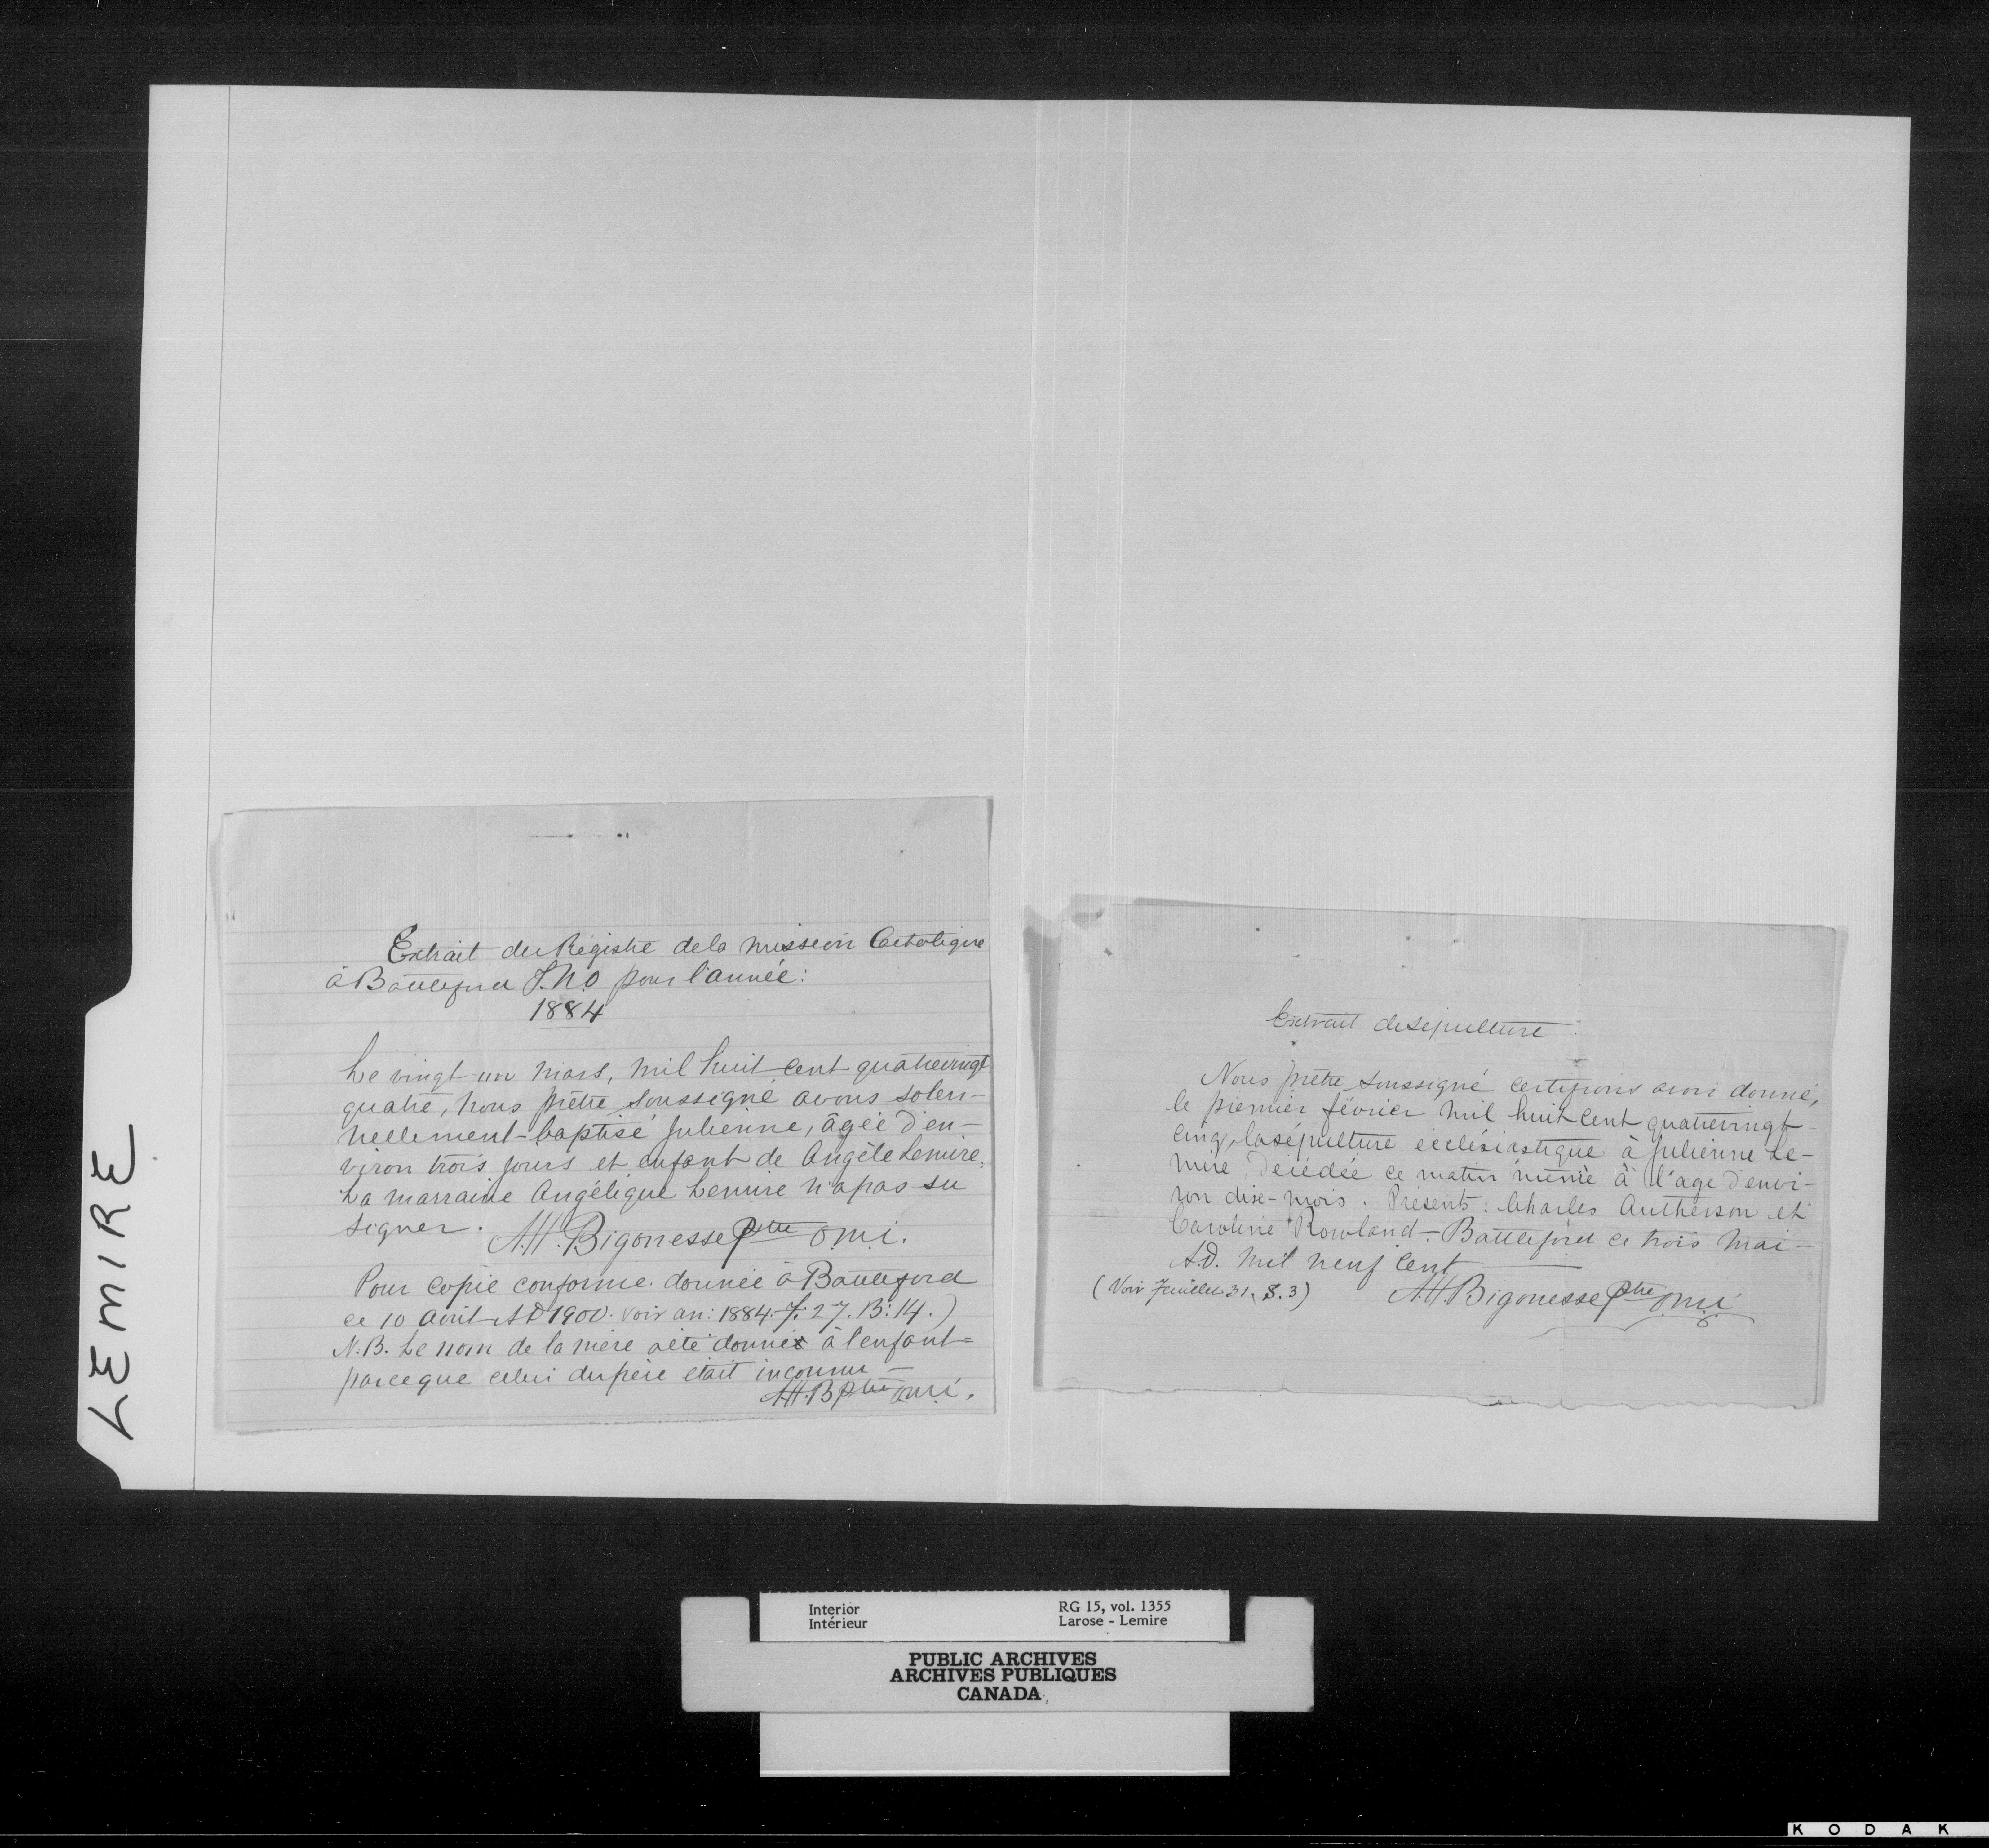 LEMIRE
Extrait du Régistre de la mission Catholique
à Battleford T.N.O pour l'année:
1884
Le vingt-un mars, mil huit cent quatrevingt
quatre, nous prêtre soussigné avons solen-
nellement baptisé Julienne, âgée d'en-
viron trois jours et enfant de Angèle Lemire.
La marraine Angélique Lemire n'a pas su
signer. A.H. Bigonesse Ptre o.m.i.
Pour copie conforme donnée à Battleford
ce 10 Avril AD 1900. voir an: 1884. f. 27. B: 14.)
N.B. Le nom de la mère a été donné à l'enfant=
parceque celui du père était inconnu —
A.H.B Ptre o.m.i.
Extrait de sépulture
Nous prêtre soussigné certifions avoir donné,
le premier février mil huit cent quatrevingt-
cinq, la sépulture ecclésiastique à Julienne Le-
mire, décédée ce matin même à l'age d'envi-
ron dix-mois. Présents: Charles Autherson et
Caroline Rowland - Battleford ce trois Mai -
A.D. mil neuf cent
(Voir feuillet 31. S. 3) A.H. Bigonesse Ptre o.m.i
Interior RG 15, vol. 1355
Intérieur Larose - Lemire
PUBLIC ARCHIVES
ARCHIVES PUBLIQUES
CANADA
KODAK